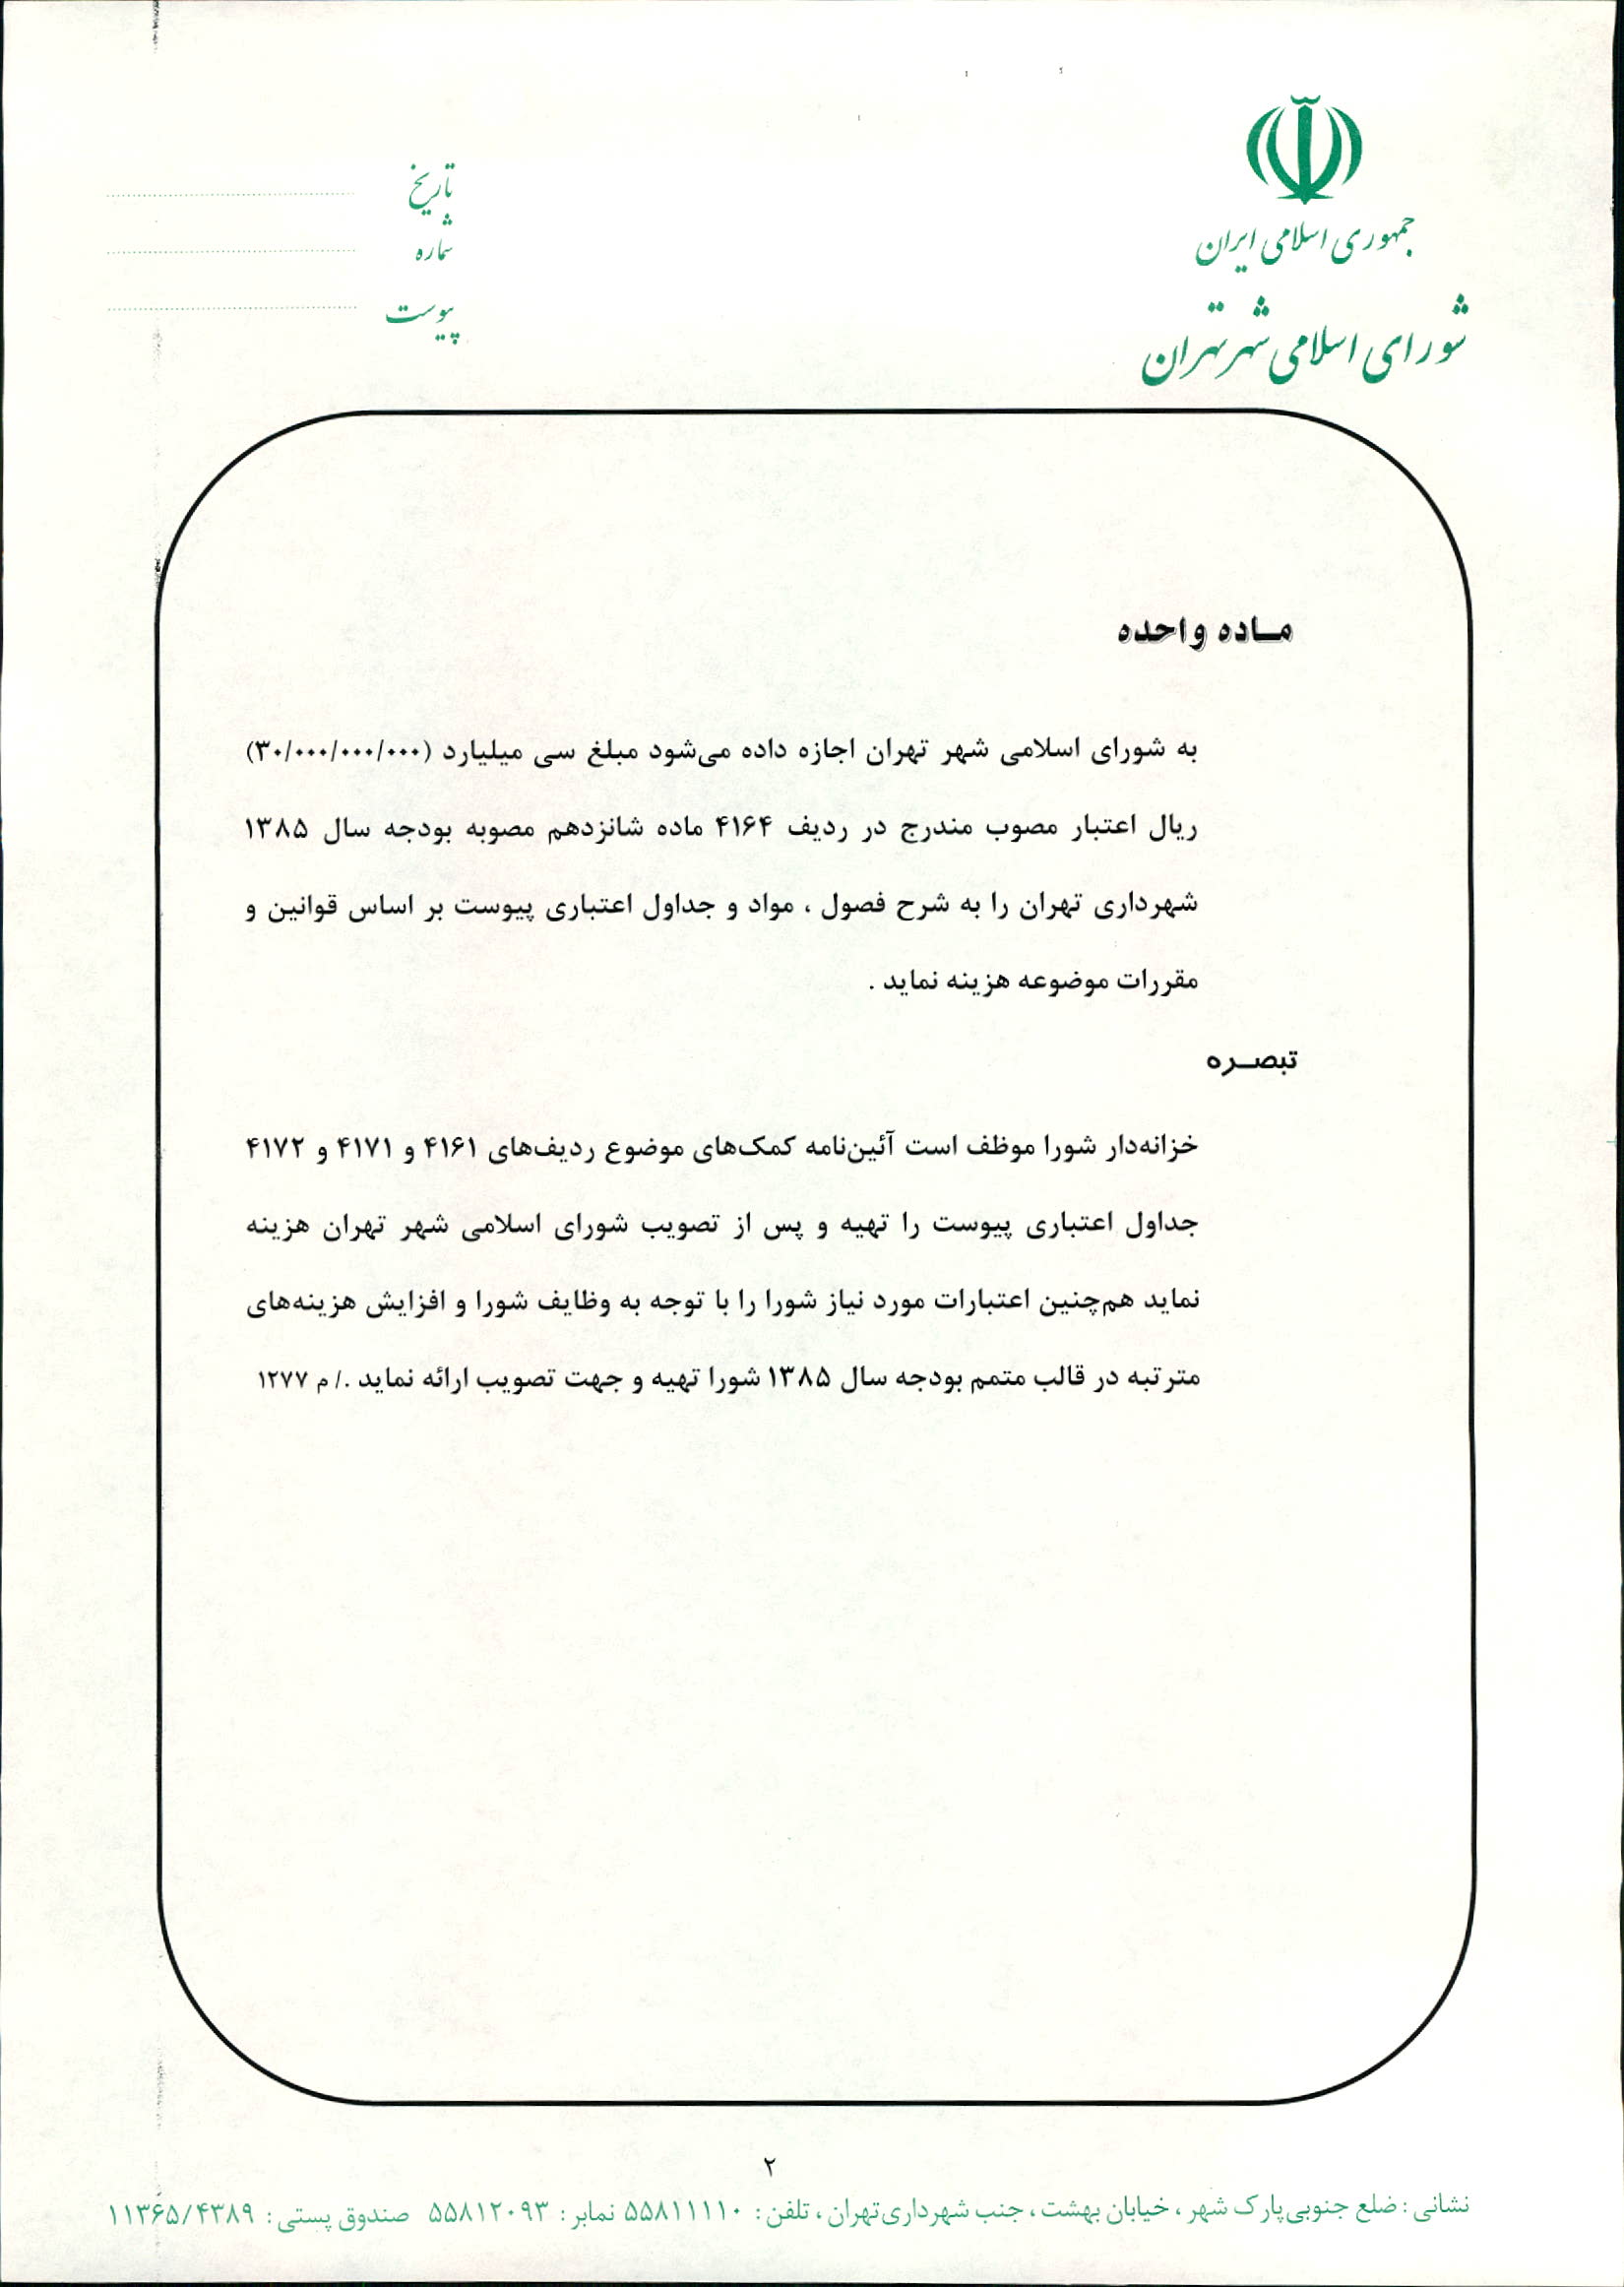 جمهوری اسلامی ایران
شورای اسلامی شهر تهران
تاریخ
شماره
پیوست
مـاده واحده
به شورای اسلامی شهر تهران اجازه داده می‌شود مبلغ سی میلیارد (۳۰/۰۰۰/۰۰۰/۰۰۰)
ریال اعتبار مصوب مندرج در ردیف ۴۱۶۴ ماده شانزدهم مصوبه بودجه سال ۱۳۸۵
شهرداری تهران را به شرح فصول ، مواد و جداول اعتباری پیوست بر اساس قوانین و
مقررات موضوعه هزینه نماید .
تبصـره
خزانه‌دار شورا موظف است آئین‌نامه کمک‌های موضوع ردیف‌های ۴۱۶۱ و ۴۱۷۱ و ۴۱۷۲
جداول اعتباری پیوست را تهیه و پس از تصویب شورای اسلامی شهر تهران هزینه
نماید هم‌چنین اعتبارات مورد نیاز شورا را با توجه به وظایف شورا و افزایش هزینه‌های
مترتبه در قالب متمم بودجه سال ۱۳۸۵ شورا تهیه و جهت تصویب ارائه نماید ./ م ۱۲۷۷
۲
نشانی : ضلع جنوبی پارک شهر ، خیابان بهشت ، جنب شهرداری تهران ، تلفن : ۵۵۸۱۱۱۱۰ نمابر : ۵۵۸۱۲۰۹۳ صندوق پستی : ۱۱۳۶۵/۴۳۸۹